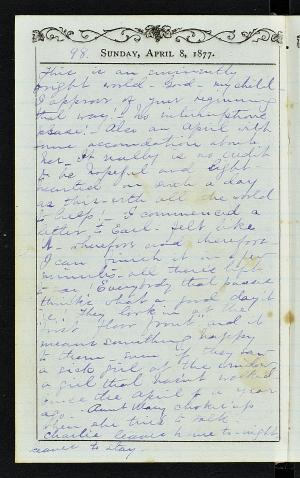 98.
SUNDAY, APRIL 8, 1877.
This is an eminently
bright world - God - my child
I approve of your beginning
that way - no interruptions
please! Also an April with
more accomodation about
her. It really is no credit
to be hopeful and light-
hearted on such a day
as this - with all the world
to help! I commenced a
letter to Earl - felt like
it - therefore and therefore
I can finish it in a few
minutes - all there's left
to say! Everybody that passes
thinks what a good day it
is! They look in at the
first floor front and it
means something happy
to them - even if they saw
a sick girl at the window
a girl that hasn't walked
since the April of a year
ago. - Aunt Mary chokes up
when she tries to talk
Charlie leaves home to-night
to stay.